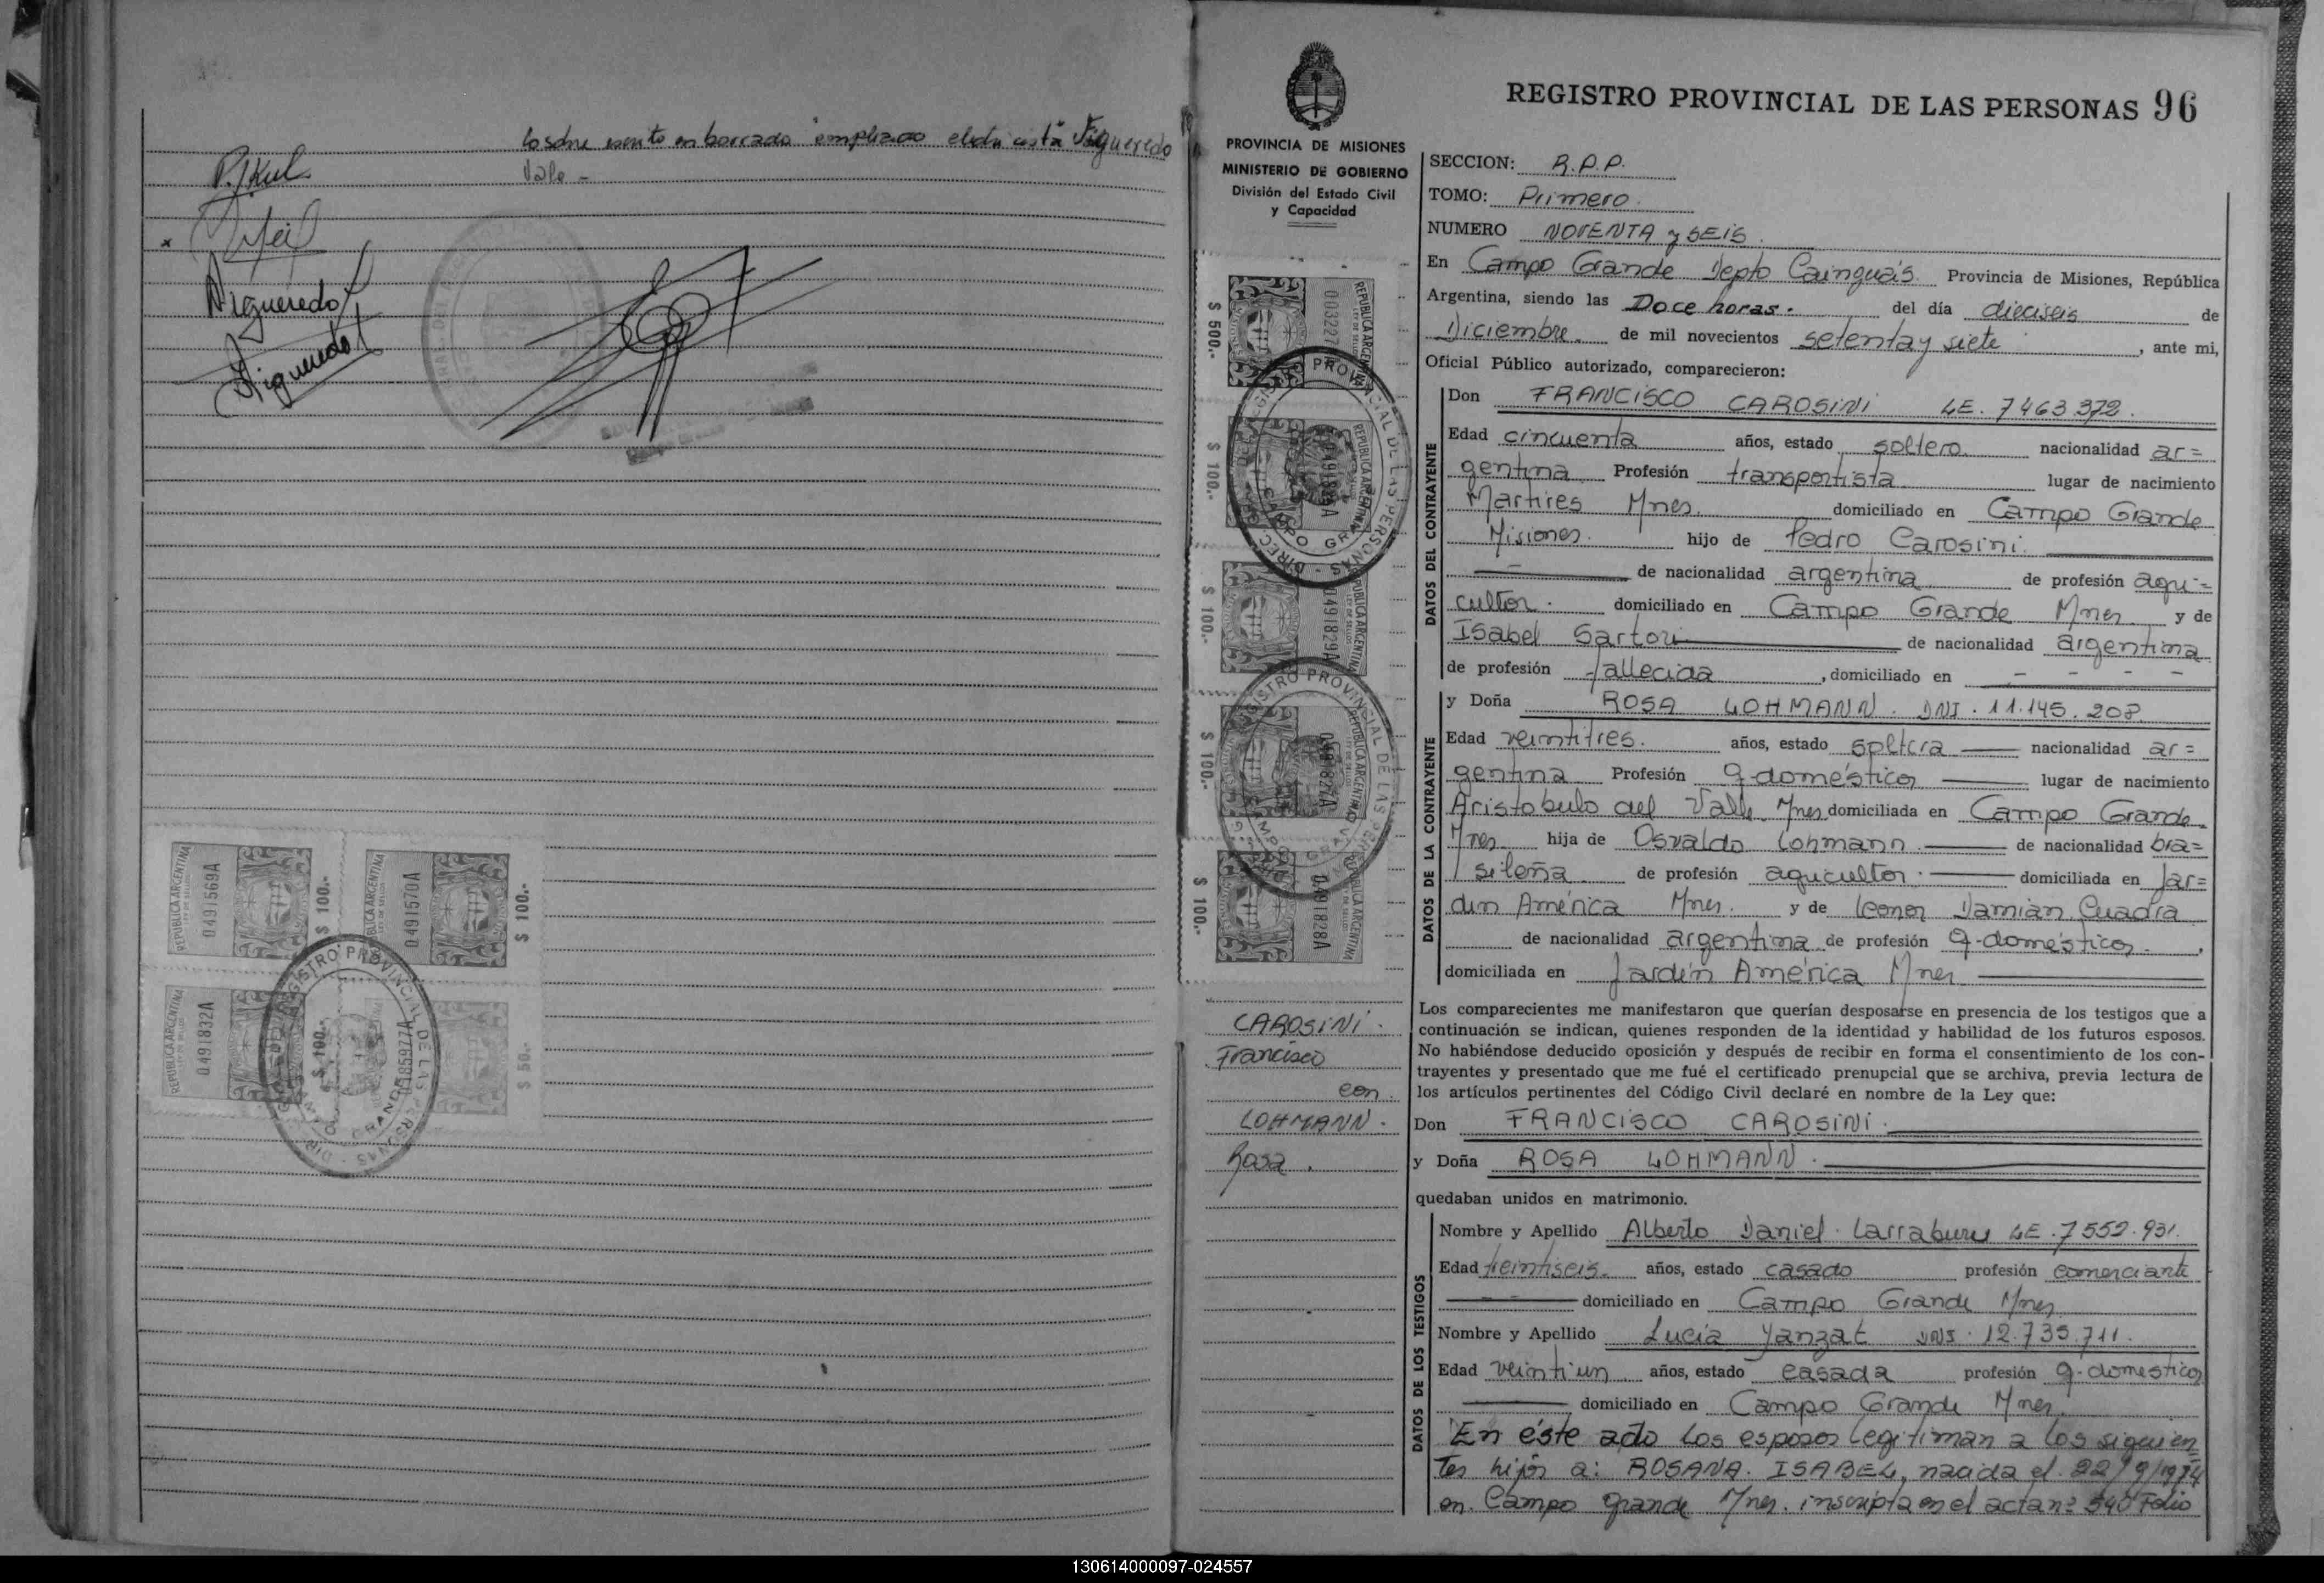 lo sobre escrito en borrado "empleado electricista" Figueredo
Vale -
Figueredo
Figueredo
REPUBLICA ARGENTINA
0491569A
$ 100.-
REPUBLICA ARGENTINA
0491570A
$ 100.-
REPUBLICA ARGENTINA
0491832A
$ 100.-
$ 50.-
REGISTRO PROVINCIAL DE LAS PERSONAS
PROVINCIA DE MISIONES
MINISTERIO DE GOBIERNO
División del Estado Civil
y Capacidad
$ 500.-
REPUBLICA ARGENTINA
$ 100.-
REPUBLICA ARGENTINA
$ 100.-
0491829A
REPUBLICA ARGENTINA
$ 100.-
REPUBLICA ARGENTINA
$ 100.-
0491828A
REPUBLICA ARGENTINA
REGISTRO PROVINCIAL DE LAS PERSONAS
CAMPO GRANDE
CAROSINI.
Francisco
con
LOHMANN.
Rosa.
REGISTRO PROVINCIAL DE LAS PERSONAS 96
SECCION: R.P.P.
TOMO: Primero.
NUMERO NOVENTA y SEIS.
En Campo Grande Depto Cainguás. Provincia de Misiones, República
Argentina, siendo las Doce horas. del día dieciseis de
Diciembre. de mil novecientos setenta y siete, ante mi,
Oficial Público autorizado, comparecieron:
DATOS DEL CONTRAYENTE
Don FRANCISCO CAROSINI LE. 7463372.
Edad cincuenta años, estado soltero. nacionalidad ar=
gentina Profesión transportista lugar de nacimiento
Martires Mnes. domiciliado en Campo Grande
Misiones. hijo de Pedro Carosini.
de nacionalidad argentina de profesión agri=
cultor. domiciliado en Campo Grande Mnes y de
Isabel Sartori de nacionalidad argentina
de profesión fallecida, domiciliado en - - - -
DATOS DE LA CONTRAYENTE
y Doña ROSA LOHMANN. DNI. 11.145.208.
Edad veintitres. años, estado soltera nacionalidad ar=
gentina Profesión q-domésticos lugar de nacimiento
Aristobulo del Valle Mnes domiciliada en Campo Grande
Mnes. hija de Osvaldo Lohmann. de nacionalidad bra=
sileña de profesión agricultor. domiciliada en Jar=
din América Mnes. y de Leonor Damian Cuadra
de nacionalidad argentina de profesión q-domésticos,
domiciliada en Jardín América Mnes
Los comparecientes me manifestaron que querían desposarse en presencia de los testigos que a
continuación se indican, quienes responden de la identidad y habilidad de los futuros esposos.
No habiéndose deducido oposición y después de recibir en forma el consentimiento de los con-
trayentes y presentado que me fué el certificado prenupcial que se archiva, previa lectura de
los artículos pertinentes del Código Civil declaré en nombre de la Ley que:
Don FRANCISCO CAROSINI.
y Doña ROSA LOHMANN.
quedaban unidos en matrimonio.
DATOS DE LOS TESTIGOS
Nombre y Apellido Alberto Daniel Larraburu LE. 7552.931.
Edad años, estado casado profesión comerciante
domiciliado en Campo Grande Mnes
Nombre y Apellido Lucia Yanzat DNI. 12.735.711.
Edad veintiun años, estado casada profesión q-domesticos
domiciliado en Campo Grande Mnes.
En éste acto los esposos legitiman a los siguien
tes hijos a: ROSANA. ISABEL, nacida el 22/9/1974
en Campo Grande Mnes. inscripta en el acta nº 540 Folio
130614000097-024557